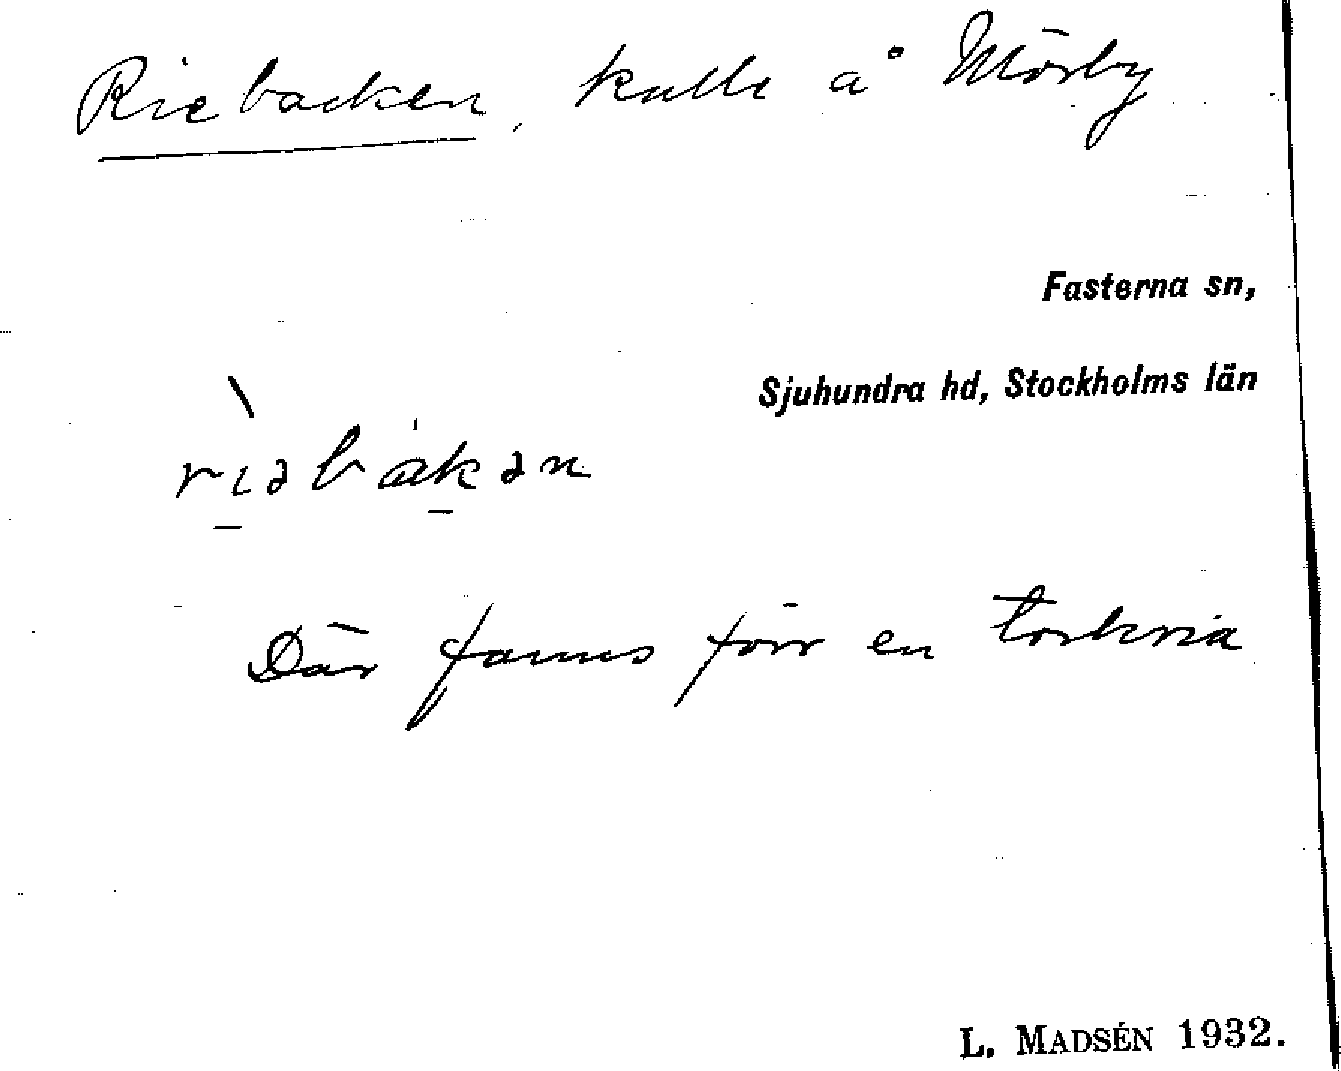 Riebacken, kulle å Mörby
Fasterna sn,
Sjuhundra hd, Stockholms län
rìəbákən
Där fanns förr en torkria
L. MADSÉN 1932.